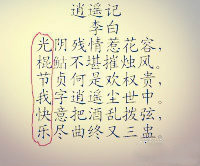 逍遥记
李白
光阴残情惹花容，
棍鲇不堪摧烛风。
节贞何是欢权贵，
我字逍遥尘世中。
快意把酒乱拨弦，
乐尽曲终又三盅。